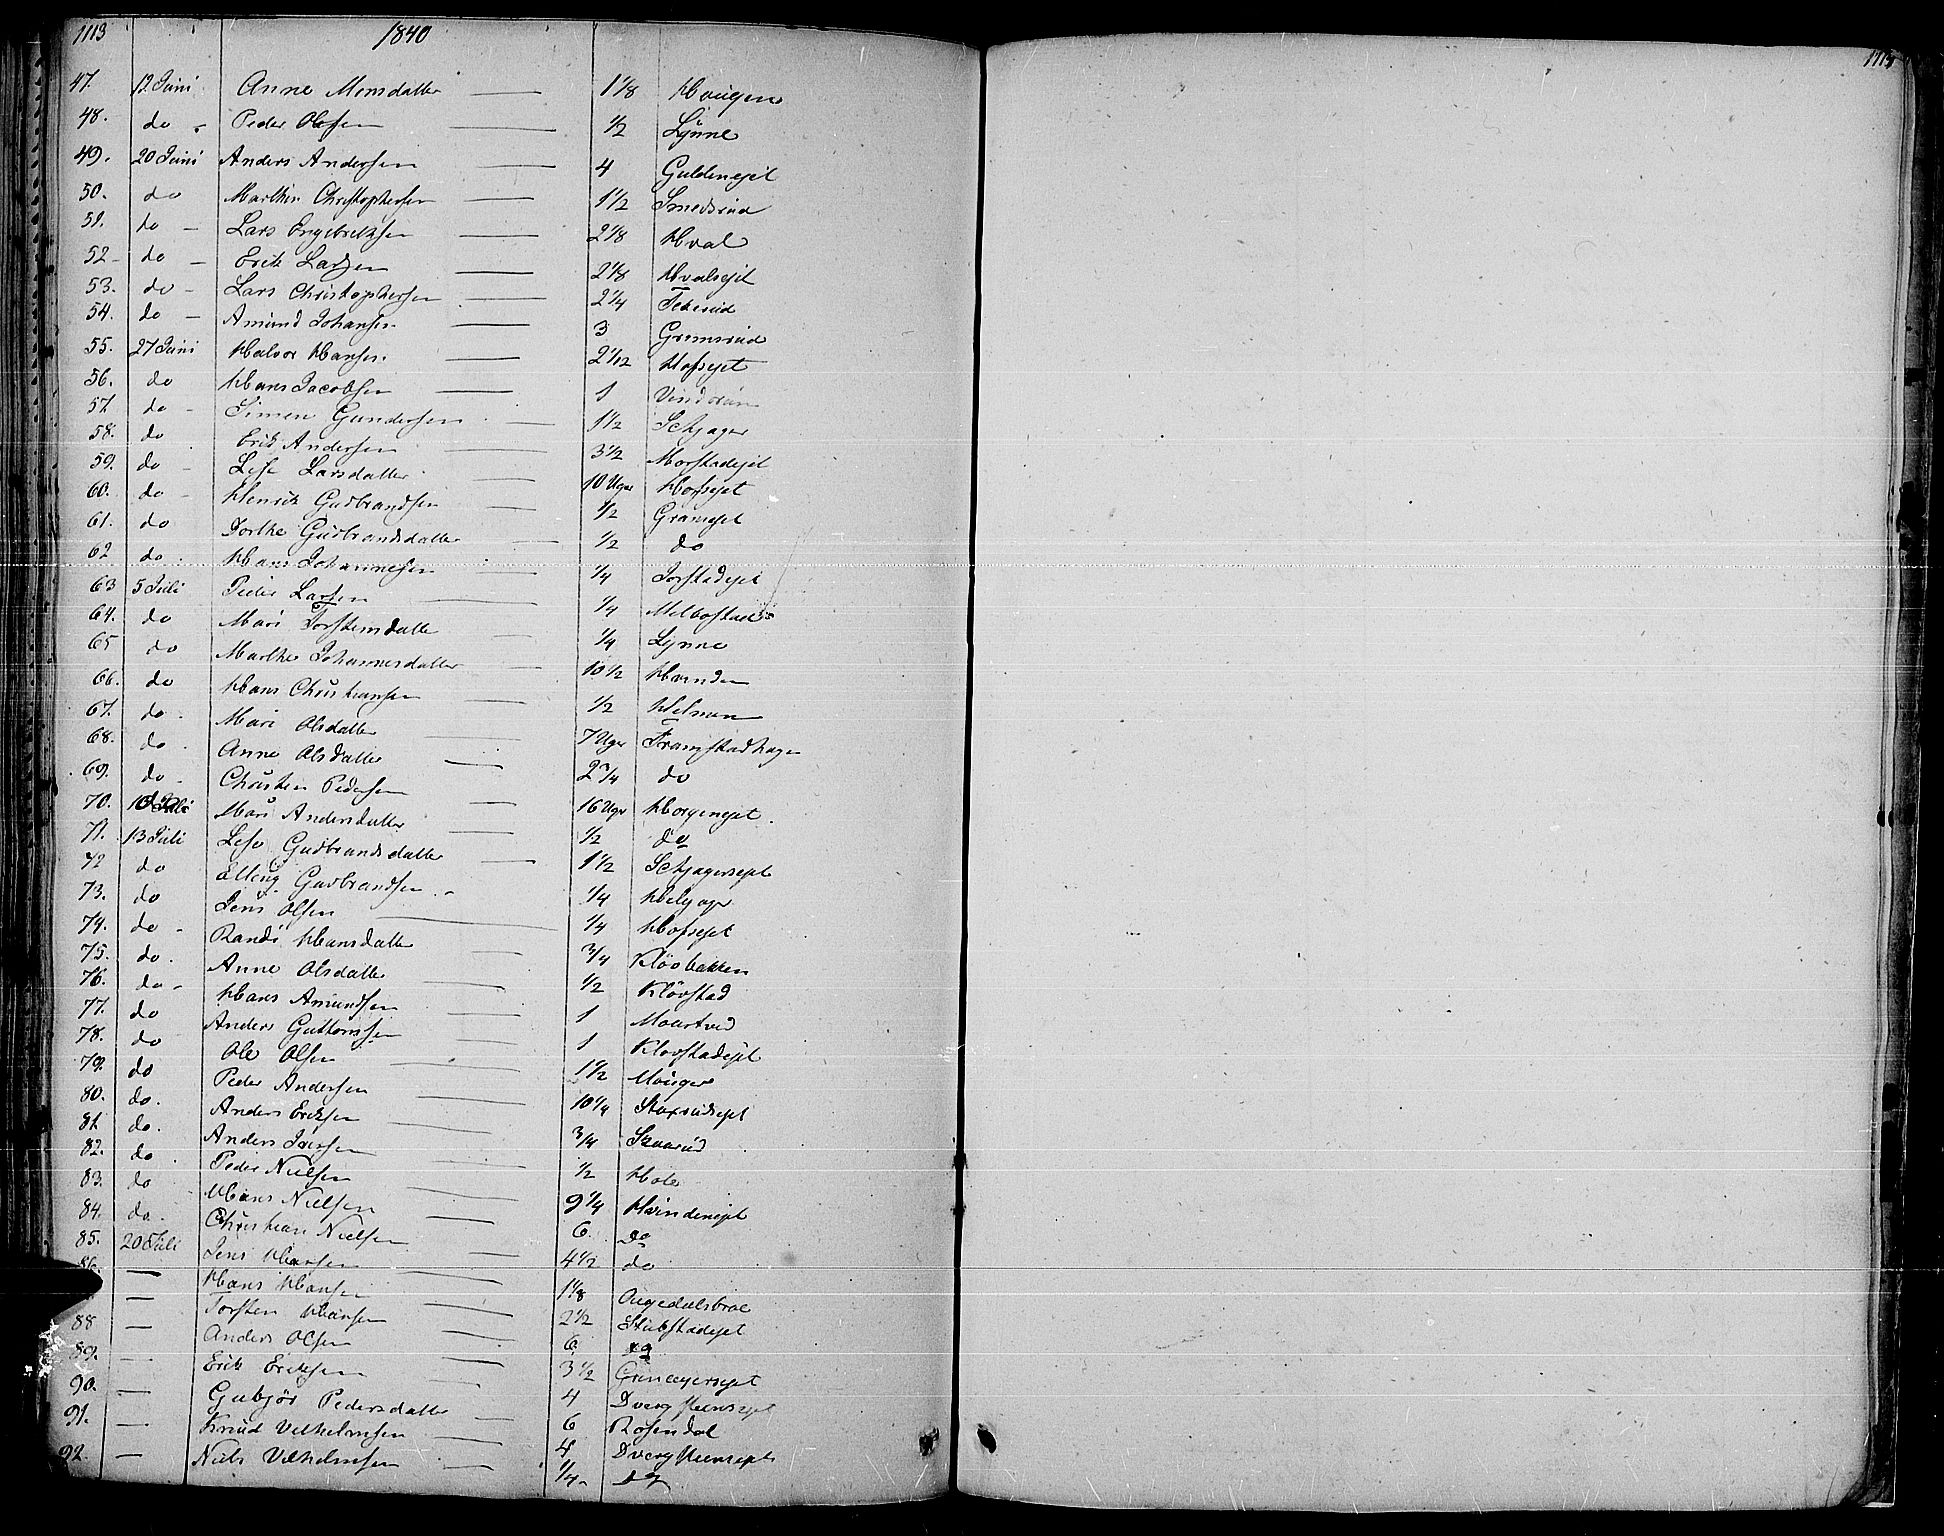 1113 1840 1115
47. 12 Juni Anne Monsdatter 1 1/8 Haugen
48. do Peder Olesen 1/2 Lynne
49. 20 Juni Anders Andersen 4 Guldenejet
50. do Marthin Christophersen 1 1/2 Smedsrud
51. do Lars Engebretsen 2 1/8 Hval
52 do Erik Larsen 2 1/8 Hvalsejet
53. do Lars Christophersen 2 1/4
54. do Amund Johansen 3 Grimsrud
55. 27 Juni Halvor Hansen 2 1/12 Hofsejet
56. do Hans Jacobsen 1
57 do Simen Gundersen 1 1/2 Schjager
58. do Erik Andersen 3 1/2 Morstadejet
59. do Lise Larsdatter 10 Uger Hofsejet
60. do Henrik Gudbrandsen 1/2 Granejet
61. do Dorthe Gudbrandsdatter 1/2 do
62 do Hans Johannesen 1/4 Jorstadejet
63 5 Juli Peder Larsen 1/4 Melbostad
64. do Mari Torstensdatter 1/4 Lynne
65 do Marthe Johannesdatter 10 1/2 Hvinden
66. do Hans Christiansen 1/2
67. do Mari Olsdatter 7 Uger Framstadhagen
68. do Anne Olsdatter 2 3/4 do
69. do Christen Pedersen 16 Uger Horgenejet
70. Juli Mari Andersdatter 1/2 do
71. 13 Juli Lise Gudbrandsdatter 1 1/2 Schjagersejet
72 do Elling Gudbrandsen 1/4 Helgager
73. do Jens Olsen 1/4 Hofsejet
74. do Randi Hansdatter 3/4 Kløvbakken
75. do Anne Olsdatter 1/2 Kløvstad
76. do Hans Amundsen 1 Maartved
77. do Anders Guttormsen 1 Klovstadejet
78. do Ole Olsen 1 1/2 Mauger
79. do Peder Andersen 10 1/4
80. do. Anders Eriksen 3/4 Skaarud
81 do. Anders Larsen 1/2 Hole
82. do Peder Nielsen 9 1/4 Hvindenejet
83. do Hans Nielsen 6 do
84. do. Christian Nielsen 4 1/2 do
85. 20 Juli Jens Hansen 1 1/8 Augedalsbroe
86. — Hans Hansen 2 1/2 Stubstadejet
— Torsten Hansen 6 do
88 — Anders Olsen 3 1/2 Grinagersejet
89. — Erik Eriksen 4 Dvergsteensejet
90. — Gubjør Pedersdatter 6 Rosendal
91. — Knud Vilhelmsen 4 Dvergsteensejet
92. — Niels Vilhelmsen 1/4 do